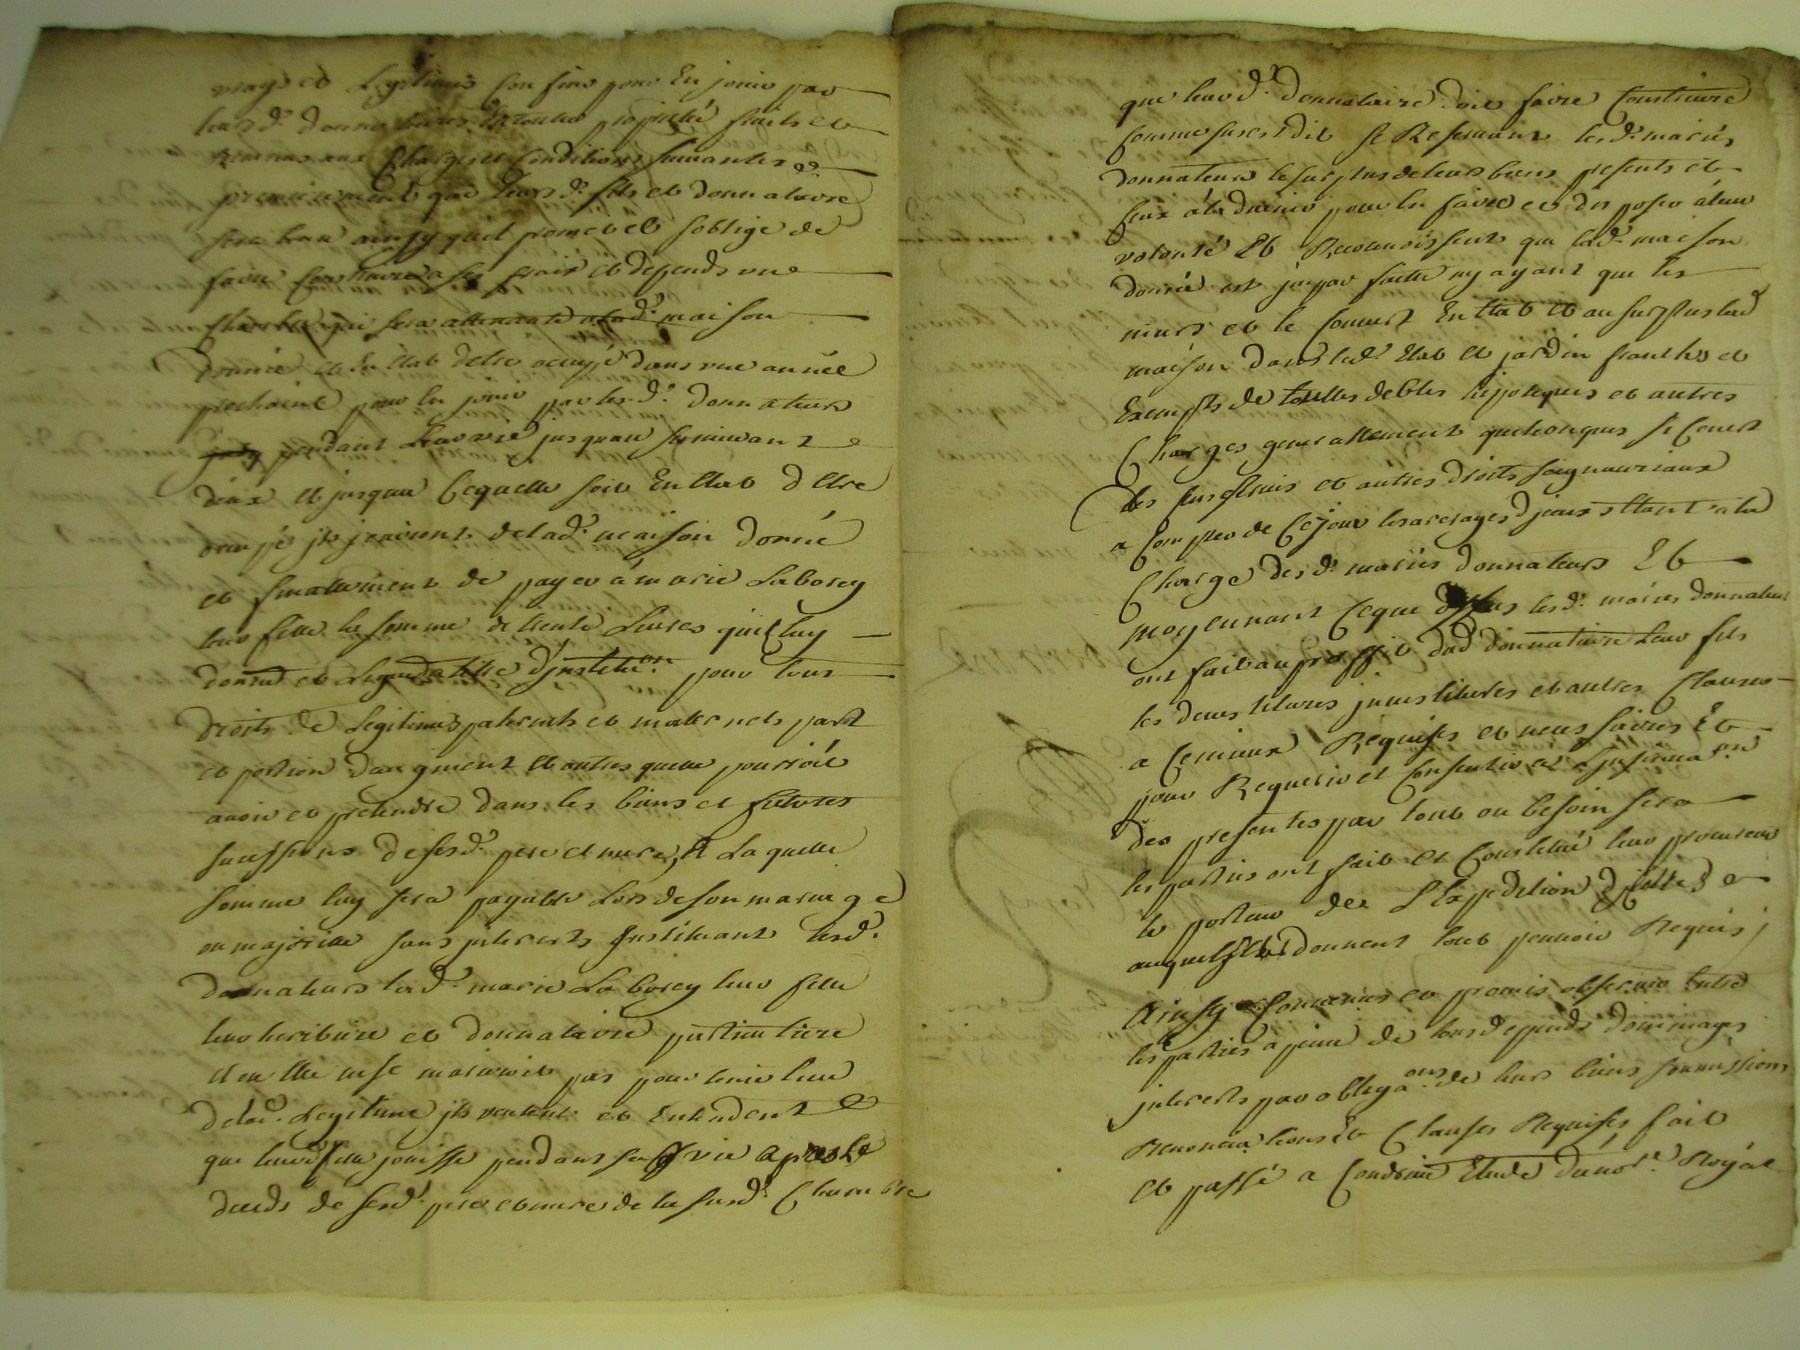 vrays et Legitimes Confins pour En jouir par
leursd. donnataires En toutte proprieté fruits et
Revenus aux Charges et Conditions suivantes
premierement que leursd. fils et donnataire
sera tenu ainsy quil promet et soblige de
faire Construire a ses frais et depends une
Chambre qui sera attenante a lad. maison
donnée et En Etat detre occupé dans une année
prochaine pour En jouir par lesd. donnateurs
pendant Leur vie jusquau survivant
deux et jusqua Cequelle soit En Etat detre
occupé jls jouiront de lad. maison donné
et finallement de payer á marie Laborey
leur fille la somme de trente Livres quil luy
donne et Legue a titre d'jnstitu.on pour tous
droits de Legitimes paternels et maternels part
et portion daugment et autres quelle pourroit
avoir et pretendre dans les biens et futures
successions de sesd. pere et mere, Laquelle
somme luy sera payable Lors de son mariage
ou majorité sans jnterests Jnstituants lesd.
donnateurs lad. marie Laborey leur fille
leur heritiere et donnataire particuliere
et ou Elle ne se marieroit pas pour tenir lieu
de lad. Legitime jls veulent et Entendent
que leurd. fille jouisse pendant sa vie apres le
deceds de sesd. pere et mere de la susd. Chambre
que leurd. donnataire doit faire Construire
Comme susest dit se Reservant lesd. mariés
donnateurs le surplus de leurs biens presents et
ceux á la venir pour En faire et disposer á leur
volonté Et Reconnoissent que lad. maison
donnée est jmparfaitte ny ayant que les
murs et le Couvert En Etat et au surplus lad.
maison dans led. Etat et jardin franches et
Exempts de touttes debtes hipoteques et autres
Charges generallement quelconques si Cenest
des cens servis et autres droits seigneuriaux
a Compter de Cejour les arrerages djceux Etant a la
Charge desd. mariés donnateurs Et
moyennant Ceque dessus lesd. mariés donnateurs
ont fait au proffit dud. donnataire leur fils
les devestitures jnvestitures et autres Clauses
a Cemieux Requises et necessaires Et
pour Requerir et Consentir a Ljnsinua.on
des presentes par tout ou besoin sera
les parties ont fait et Constitué leur procureur
le porteur de L'Expedition djcelles
auquel Elles donnent tout pouvoir Requis;
Ainsy Convenus et promis observer Entre
les parties a peine de tous depends dommages
jnterests par obliga.ons de leurs biens soumissions
Renonciations Et Clauses Requises fait
et passé a Condrieu Etude du not.e Royal